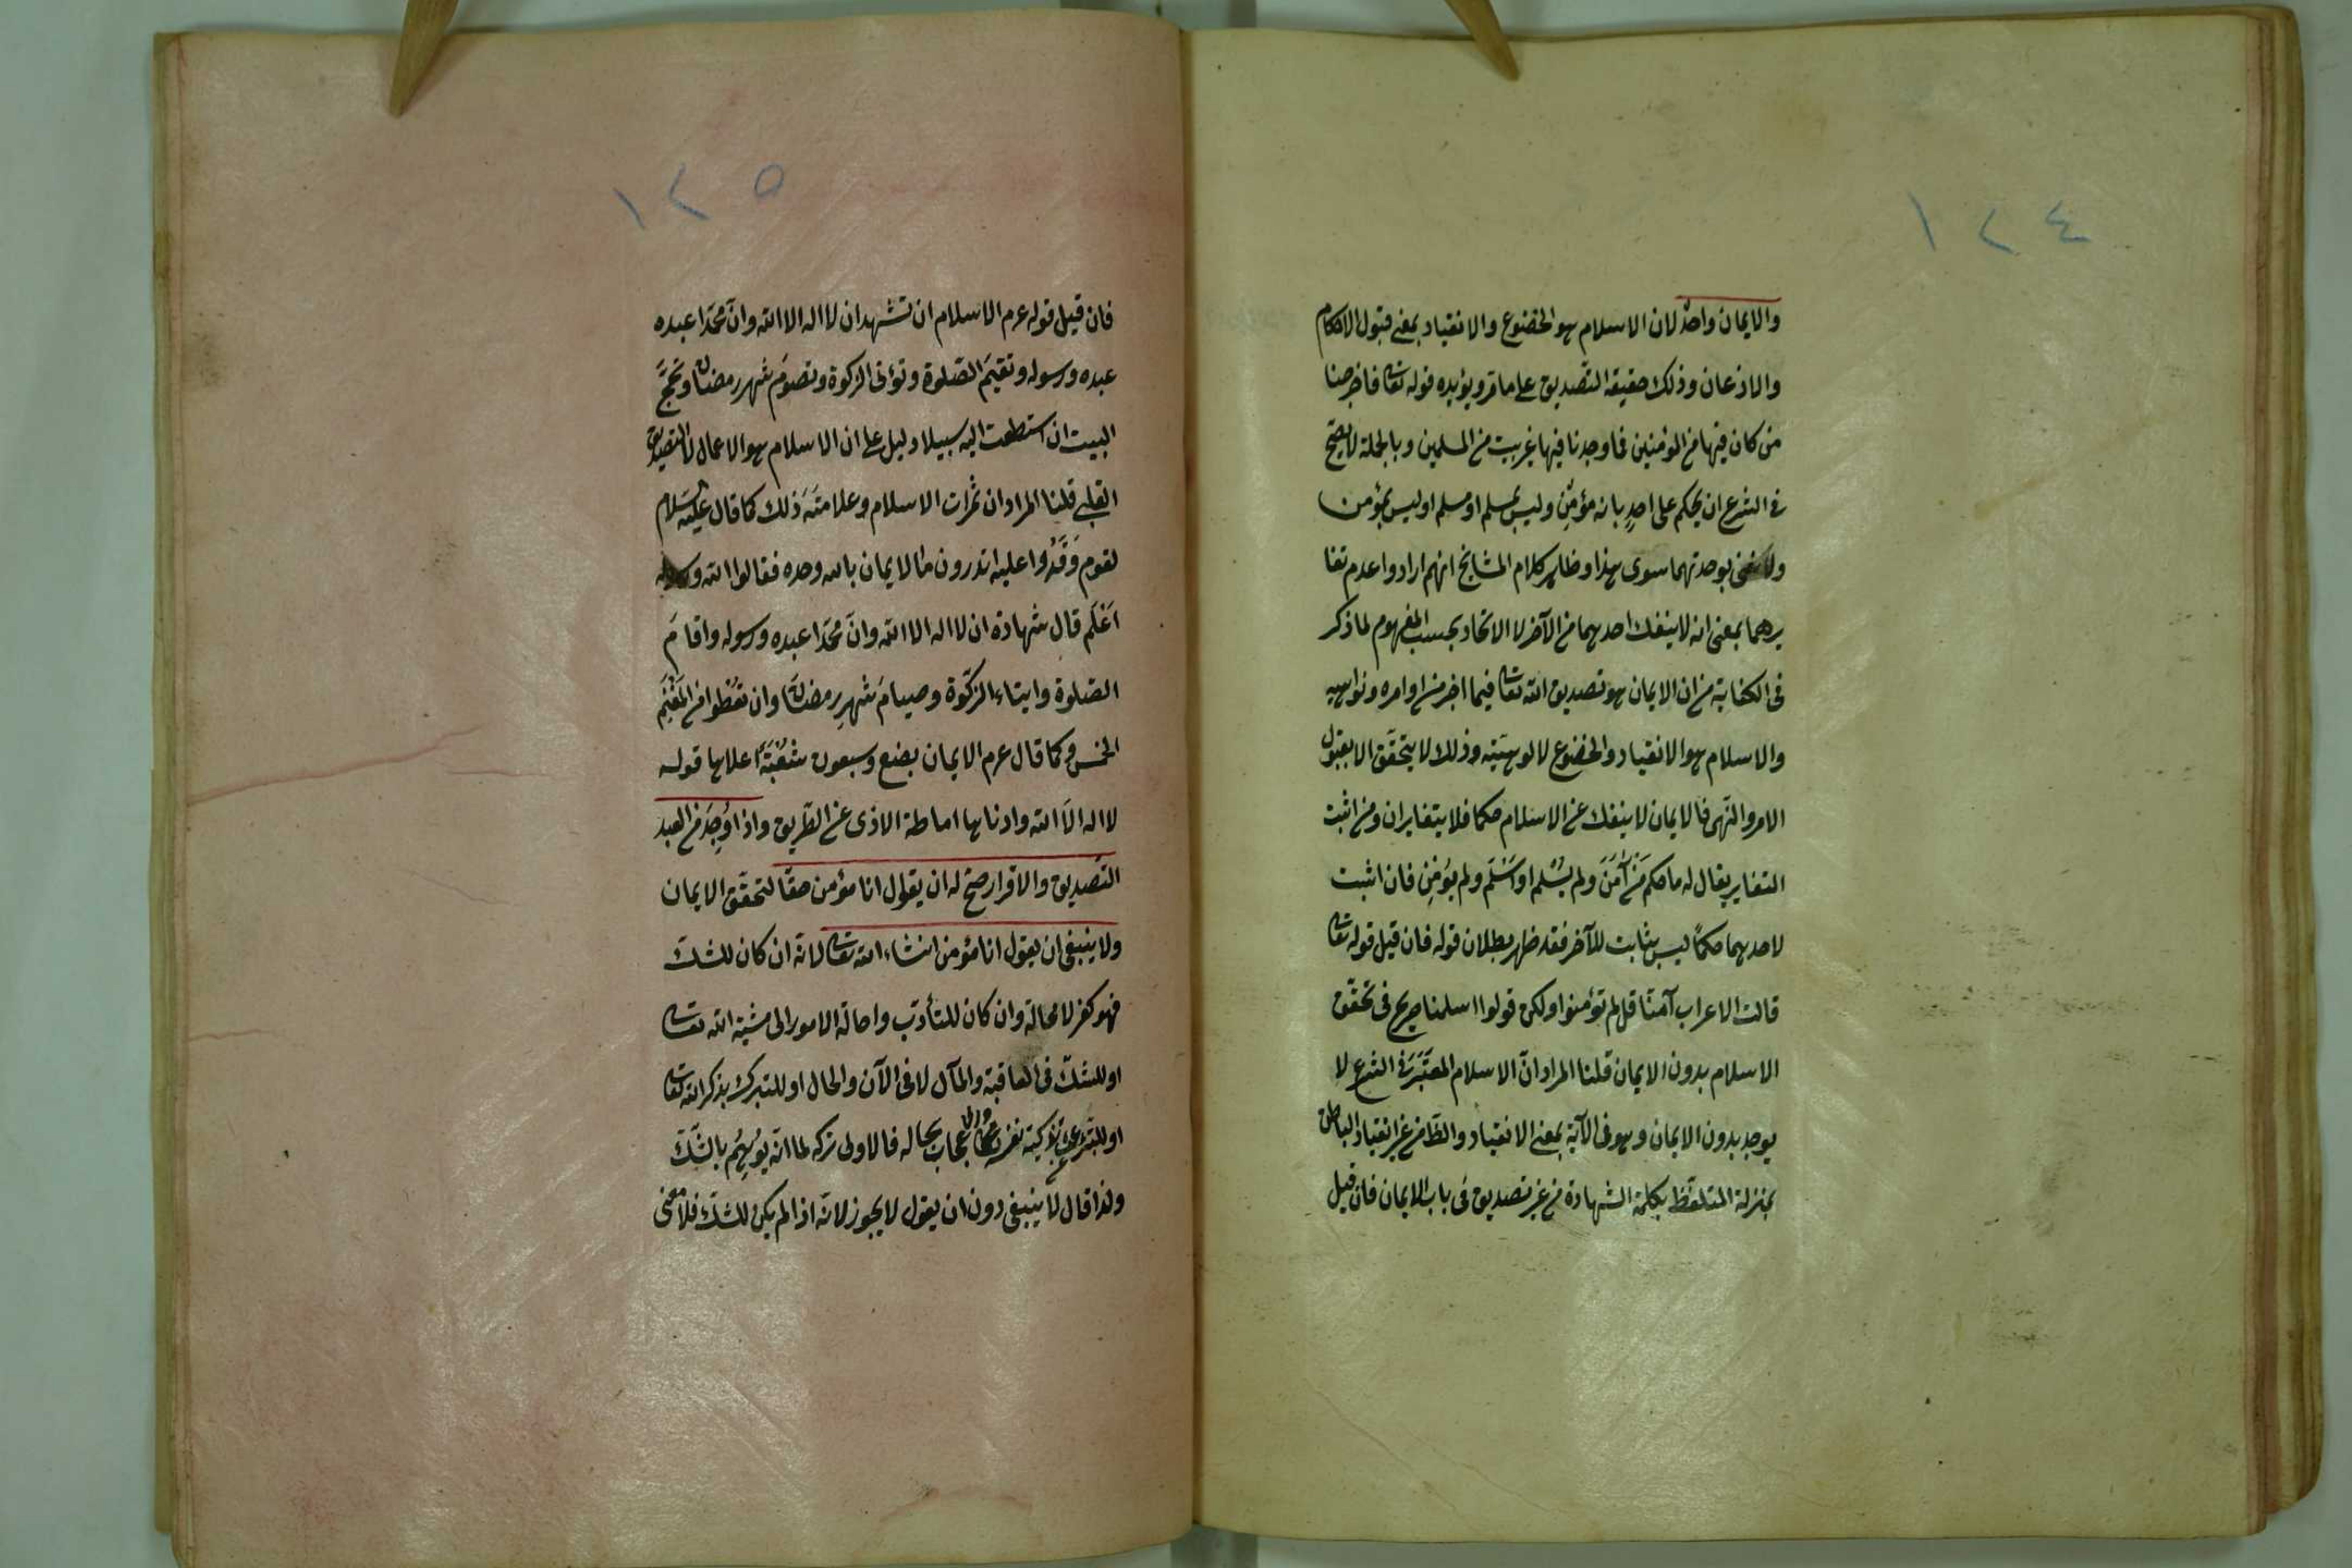 ١٢٤
والايمان واحد لان الاسلام هو الخضوع والانقياد بمعنى قبول الاحكام
والاذعان وذلك حقيقة التصديق على ما مر ويؤيده قوله تعا فاخرجنا
من كان فيها من المؤمنين فما وجدنا فيها غير بيت من المسلمين وبالجملة لا يصح
في الشرع ان يحكم على احدٍ بانه مؤمن وليس بمسلم او مسلم او ليس بمؤمن
ولا نعنى بوحدتهما سوى هذا وظاهر كلام المشايخ انهم ارادوا عدم تغا
يرهما بمعنى انه لا ينفك احدهما من الآخر لا الاتحاد بحسب المفهوم لما ذكر
فى الكفاية من ان الايمان هو تصديق الله تعا فيما اخبر من اوامره ونواهيه
والاسلام هو الانقياد والخضوع لالوهيته وذلك لا يتحقق الا بقبول
الامر والنهى فالايمان لا ينفك عن الاسلام حكما فلا يتغايران ومن اثبت
التغاير يقال له ما حكم مَنْ آمَنَ ولم يُسْلم او اَسْلَم ولم يؤمن فان اثبت
لاحدهما حكمًا ليس بثابت للآخر فقد ظهر بطلان قوله فان قيل قوله تعا
قالت الاعراب آمنّا قل لم تؤمنوا ولكن قولوا اسلمنا صريح فى تحقّق
الاسلام بدون الايمان قلنا المراد انّ الاسلام المعتَبَرَ فى الشرع لا
يوجد بدون الايمان وهو فى الآية بمعنى الانقياد والظاهر من غير انقياد الباطن
بمنزلة المتلفّظ بكلمة الشهادة من غير تصديق فى باب الايمان فان قيل
١٢٥
فان قيل قوله عرم الاسلام ان تشهد ان لا اله الا الله وانّ محمّدا عبده
عبده ورسوله وتقيمَ الصّلوة وتؤتى الزكوة وتصومَ شهر رمضان وتحجَّ
البيت ان استطعت اليه سبيلا دليل على ان الاسلام هو الاعمال لا التصديق
القلبى قلنا المراد ان ثمرات الاسلام وعلامتَه ذلك كما قال عليه السلام
لقوم وَفَدُوا عليه اتدرون ما الايمان بالله وحده فقالوا الله ورسوله
اَعْلَم قال شهادة ان لا اله الا الله وانّ محمّدا عبده ورسوله واقامَ
الصّلوة وايتاء الزكوة وصيامَ شهرِ رمضان وان تعْطوا من المَغْنَم
الخمس وكما قال عرم الايمان بضع وسبعون شُعْبَةً اعلاها قوله
لا اله الّا الله وادناها اماطة الاذى عن الطّريق واذا وُجِدَ من العبد
التّصديق والاقرار صحّ له ان يقول انا مؤمن حقّا لتحقّق الايمان
ولا ينبغى ان يقول انا مؤمن انشاء الله تعا لانّه ان كان للشكّ
فهو كفر لا محالة وان كان للتأدّب واحالة الامور الى مشيّة الله تعا
او للشكّ فى العاقبة والمآل لا فى الآن والحال او للتبرك بذكر الله تعا
او للتبرى عن تزكية نفسه والاعجاب بحاله فالاولى تركه لما انّه يُوهِمُ بالشّكّ
ولذا قال لا ينبغى دون ان يقول لا يجوز لانّه اذا لم يكن للشّكّ فلا معنى